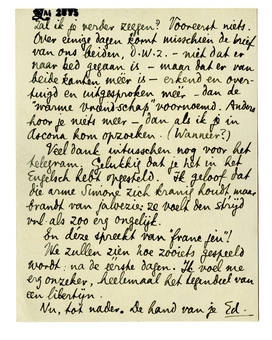 Zal ik je verder zeggen? Vooreerst niets.
Over eenige dagen komt misschien de brief
van ons beiden, D.W.Z. — niet dat er
naar bed gegaan is — maar dat er van
beide kanten méér is — erkend en over-
tuigd en uitgesproken méér — dan de
"warme vriendschap" voornoemd. Anders
hoor je niets meer — dan als ik je in
Ascona kom opzoeken. (Wanneer?)
Veel dank intusschen nog voor het
telegram. Gelukkig dat je het in het
Engelsch hebt opgesteld. Ik geloof dat
die arme Simone zich kranig houdt, maar
brandt van jalvezie: ze voelt den strijd
vnl. als zoo erg ongelijk.
En déze spreekt van "franc jeu"!
We zullen zien hoe zooiets gespeeld
wordt: na de eerste dagen. Ik voel me
erg onzeker, heelemaal het tegendeel van
een libertijn.
Nu, tot nader. De hand van je Ed.